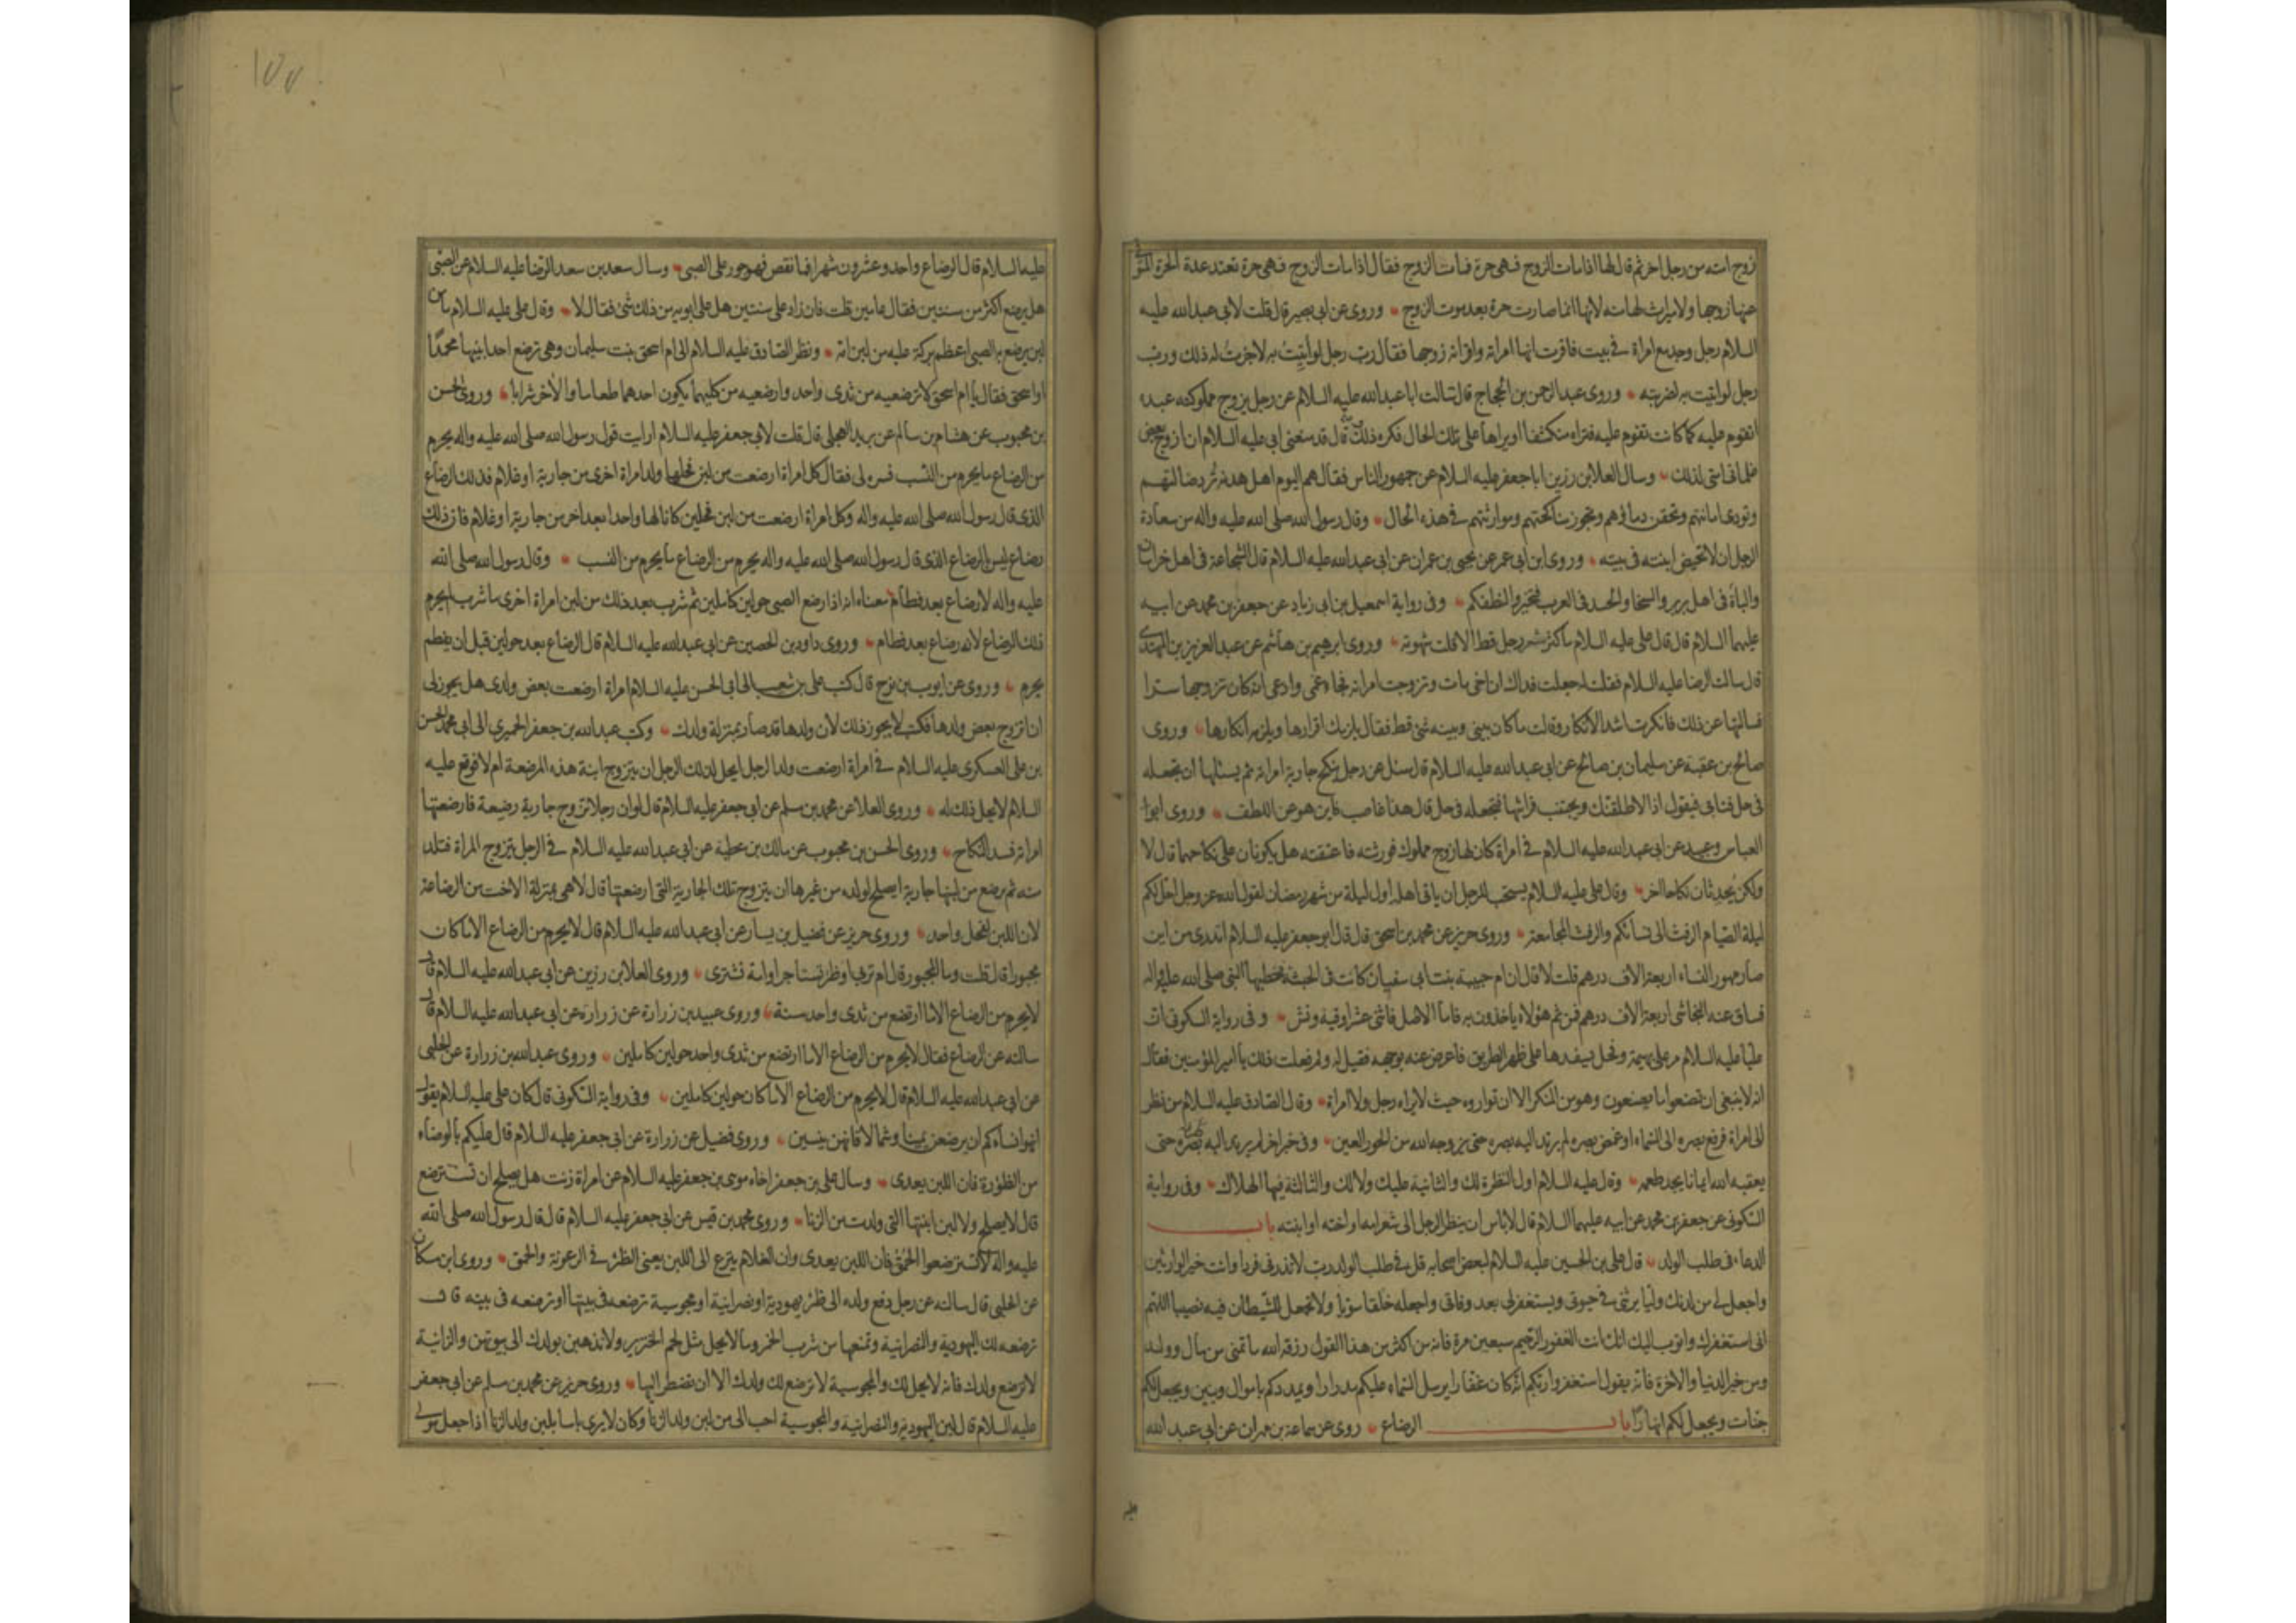 زوج امته من رجل اخر ثم قال لها اذا مات الزوج فهى حرة فمات الزوج فقال اذا مات الزوج فهى حرة تعتد عدة الحرة المتوفى
عنها زوجها ولا ميراث لها منه لانها انما صارت حرة بعد موت الزوج وروى عن ابى بصير قال قلت لابى عبد الله عليه
السلام رجل وجد مع امراة فى بيت فاقرت انها امراته واقر انه زوجها فقال رب رجل لو اتيت به لاجزت له ذلك ورب
رجل لو اتيت به لضربته وروى عبد الرحمن بن الحجاج قال سالت ابا عبد الله عليه السلام عن رجل يزوج مملوكته عبده
اتقوم عليه كما كانت تقوم عليه فتراه منكشفا او يراها على تلك الحال فكره ذلك وقال قد منعنى ابى عليه السلام ان ازوج بعض
غلمانى امتى لذلك وسال العلا بن رزين ابا جعفر عليه السلام عن جمهور الناس فقال هم اليوم اهل هدنة ترد ضالتهم
وتودى امانتهم وتحقن دماؤهم وتجوز مناكحتهم وموارثتهم فى هذه الحال وقال رسول الله صلى الله عليه واله من سعادة
الرجل ان لا تحيض ابنته فى بيته وروى ابن ابى عمير عن يحيى بن عمران عن ابى عبد الله عليه السلام قال الشجاعة فى اهل خراسان
والباه فى اهل بربر والسخا والحسد فى العرب فتخيروا لنطفكم وفى رواية اسمعيل بن ابى زياد عن جعفر بن محمد عن ابيه
عليهما السلام قال قال على عليه السلام ما كثر شعر رجل قط الا قلت شهوته وروى ابرهيم بن هاشم عن عبد العزيز بن المهتدى
قال سالت الرضا عليه السلام فقلت له جعلت فداك ان اخى مات وتزوجت امراته فجاء عمى وادعى انه كان تزوجها سرا
فسالتها عن ذلك فانكرت اشد الانكار وقالت ما كان بينى وبينه شئ قط فقال يلزمك اقرارها ويلزمه انكارها وروى
صالح بن عقبة عن سليمان بن صالح عن ابى عبد الله عليه السلام قال سئل عن رجل ينكح جارية امراته ثم يسئلها ان تجعله
فى حل فتابى فيقول اذا لاطلقنك ويجتنب فراشها فتجعله فى حل قال هذا غاصب فاين هو عن اللطف وروى ابو
العباس وعبيد عن ابى عبد الله عليه السلام فى امراة كان لها زوج مملوك فورثته فاعتقته هل يكونان على نكاحهما قال لا
ولكن يجددان نكاحا اخر وقال على عليه السلام يستحب للرجل ان ياتى اهله اول ليلة من شهر رمضان لقول الله عز وجل احل لكم
ليلة الصيام الرفث الى نسائكم والرفث المجامعة وروى حريز عن محمد بن اسحق قال قال ابو جعفر عليه السلام اتدرى من اين
صار مهور النساء اربعة الاف درهم قلت لا قال ان ام حبيبة بنت ابى سفيان كانت فى الحبشة فخطبها النبى صلى الله عليه واله
فساق عنه النجاشى اربعة الاف درهم فمن ثم هؤلاء ياخذون به فاما الاصل فاثنى عشر اوقية ونش وفى رواية السكونى ان
عليا عليه السلام مر على بهيمة وفحل يسفدها على ظهر الطريق فاعرض عنه بوجهه فقيل له ولم فعلت ذلك يا امير المؤمنين فقال
انه لا ينبغى ان تصنعوا ما يصنعون وهو من المنكر الا ان تواروه حيث لا يراه رجل ولا امراة وقال الصادق عليه السلام من نظر
الى امراة فرفع بصره الى السماء او غمض بصره لم يرتد اليه بصره حتى يزوجه الله من الحور العين وفى خبر اخر لم يرتد اليه بصره حتى
يعقبه الله ايمانا يجد طعمه وقال عليه السلام اول النظرة لك والثانية عليك ولا لك والثالثة فيها الهلاك وفى رواية
السكونى عن جعفر بن محمد عن ابيه عليهما السلام قال لا باس ان ينظر الرجل الى شعر امه او اخته او ابنته باب
الدعاء فى طلب الولد قال على بن الحسين عليه السلام لبعض اصحابه قل فى طلب الولد رب لا تذرنى فردا وانت خير الوارثين
واجعل لى من لدنك وليا يرثنى فى حيوتى ويستغفر لى بعد وفاتى واجعله خلقا سويا ولا تجعل للشيطان فيه نصيبا اللهم
انى استغفرك واتوب اليك انك انت الغفور الرحيم سبعين مرة فانه من اكثر من هذا القول رزقه الله ما تمنى من مال وولد
ومن خير الدنيا والاخرة فانه يقول استغفروا ربكم انه كان غفارا يرسل السماء عليكم مدرارا ويمددكم باموال وبنين ويجعل لكم
جنات ويجعل لكم انهارا باب الرضاع روى عن سماعة بن مهران عن ابى عبد الله
عليه السلام قال الرضاع واحد وعشرون شهرا فما نقص فهو جور على الصبى وسال سعد بن سعد الرضا عليه السلام عن الصبى
هل يرضع اكثر من سنتين فقال عامين قلت فان زاد على سنتين هل على ابويه من ذلك شئ فقال لا وقال على عليه السلام ما من
لبن يرضع به الصبى اعظم بركة عليه من لبن امه ونظر الصادق عليه السلام الى ام اسحق بنت سليمان وهى ترضع احد ابنيها محمدا
او اسحق فقال يا ام اسحق لا ترضعيه من ثدى واحد وارضعيه من كليهما يكون احدهما طعاما والاخر شرابا وروى الحسن
بن محبوب عن هشام بن سالم عن بريد العجلى قال قلت لابى جعفر عليه السلام ارايت قول رسول الله صلى الله عليه واله يحرم
من الرضاع ما يحرم من النسب فسره لى فقال كل امراة ارضعت من لبن فحلها ولد امراة اخرى من جارية او غلام فذلك الرضاع
الذى قال رسول الله صلى الله عليه واله وكل امراة ارضعت من لبن فحلين كانا لها واحدا بعد اخر من جارية او غلام فان ذلك
رضاع ليس بالرضاع الذى قال رسول الله صلى الله عليه واله يحرم من الرضاع ما يحرم من النسب وقال رسول الله صلى الله
عليه واله لا رضاع بعد فطام معناه انه اذا رضع الصبى حولين كاملين ثم شرب بعد ذلك من لبن امراة اخرى ما شرب لم يحرم
ذلك الرضاع لانه رضاع بعد فطام وروى داود بن الحصين عن ابى عبد الله عليه السلام قال الرضاع بعد حولين قبل ان يفطم
يحرم وروى عن ايوب بن نوح قال كتب على بن شعيب الى ابى الحسن عليه السلام امراة ارضعت بعض ولدى هل يجوز لى
ان اتزوج بعض ولدها فكتب لا يجوز ذلك لان ولدها قد صار بمنزلة ولدك وكتب عبد الله بن جعفر الحميرى الى ابى محمد الحسن
بن على العسكرى عليه السلام فى امراة ارضعت ولد الرجل ايحل لذلك الرجل ان يتزوج ابنة هذه المرضعة ام لا فوقع عليه
السلام لا يحل ذلك له وروى العلا عن محمد بن مسلم عن ابى جعفر عليه السلام قال لو ان رجلا تزوج جارية رضيعة فارضعتها
امراته فسد النكاح وروى الحسن بن محبوب عن مالك بن عطية عن ابى عبد الله عليه السلام فى الرجل يتزوج المراة فتلد
منه ثم يرضع من لبنها جارية ايصلح لولده من غيرها ان يتزوج تلك الجارية التى ارضعتها قال لا هى بمنزلة الاخت من الرضاعة
لان اللبن لفحل واحد وروى حريز عن فضيل بن يسار عن ابى عبد الله عليه السلام قال لا يحرم من الرضاع الا ما كان
مجبورا قال قلت وما المجبور قال ام تربى او ظئر تستاجر او امة تشترى وروى العلا بن رزين عن ابى عبد الله عليه السلام قال
لا يحرم من الرضاع الا ما ارتضع من ثدى واحد سنة وروى عبيد بن زرارة عن زرارة عن ابى عبد الله عليه السلام قال
سالته عن الرضاع فقال لا يحرم من الرضاع الا ما ارتضع من ثدى واحد حولين كاملين وروى عبد الله بن زرارة عن الحلبى
عن ابى عبد الله عليه السلام قال لا يحرم من الرضاع الا ما كان حولين كاملين وفى رواية السكونى قال كان على عليه السلام يقول
انهوا نساءكم ان يرضعن يمينا وشمالا فانهن ينسين وروى فضيل عن زرارة عن ابى جعفر عليه السلام قال عليكم بالوضاء
من الظؤرة فان اللبن يعدى وسال على بن جعفر اخاه موسى بن جعفر عليه السلام عن امراة زنت هل يصلح ان تسترضع
قال لا يصلح ولا لبن ابنتها التى ولدت من الزنا وروى محمد بن قيس عن ابى جعفر عليه السلام قال قال رسول الله صلى الله
عليه واله لا تسترضعوا الحمقى فان اللبن يعدى وان الغلام ينزع الى اللبن يعنى الظئر فى الرعونة والحمق وروى ابن مسكان
عن الحلبى قال سالته عن رجل دفع ولده الى ظئر يهودية او نصرانية او مجوسية ترضعه فى بيتها او ترضعه فى بيته قال
ترضعه لك اليهودية والنصرانية وتمنعها من شرب الخمر وما لا يحل مثل لحم الخنزير ولا تذهبن بولدك الى بيوتهن والزانية
لا ترضع ولدك فانه لا يحل لك والمجوسية لا ترضع لك ولدك الا ان تضطر اليها وروى حريز عن محمد بن مسلم عن ابى جعفر
عليه السلام قال لبن اليهودية والنصرانية والمجوسية احب الى من لبن ولد الزنا وكان لا يرى باسا بلبن ولد الزنا اذا جعل مولى